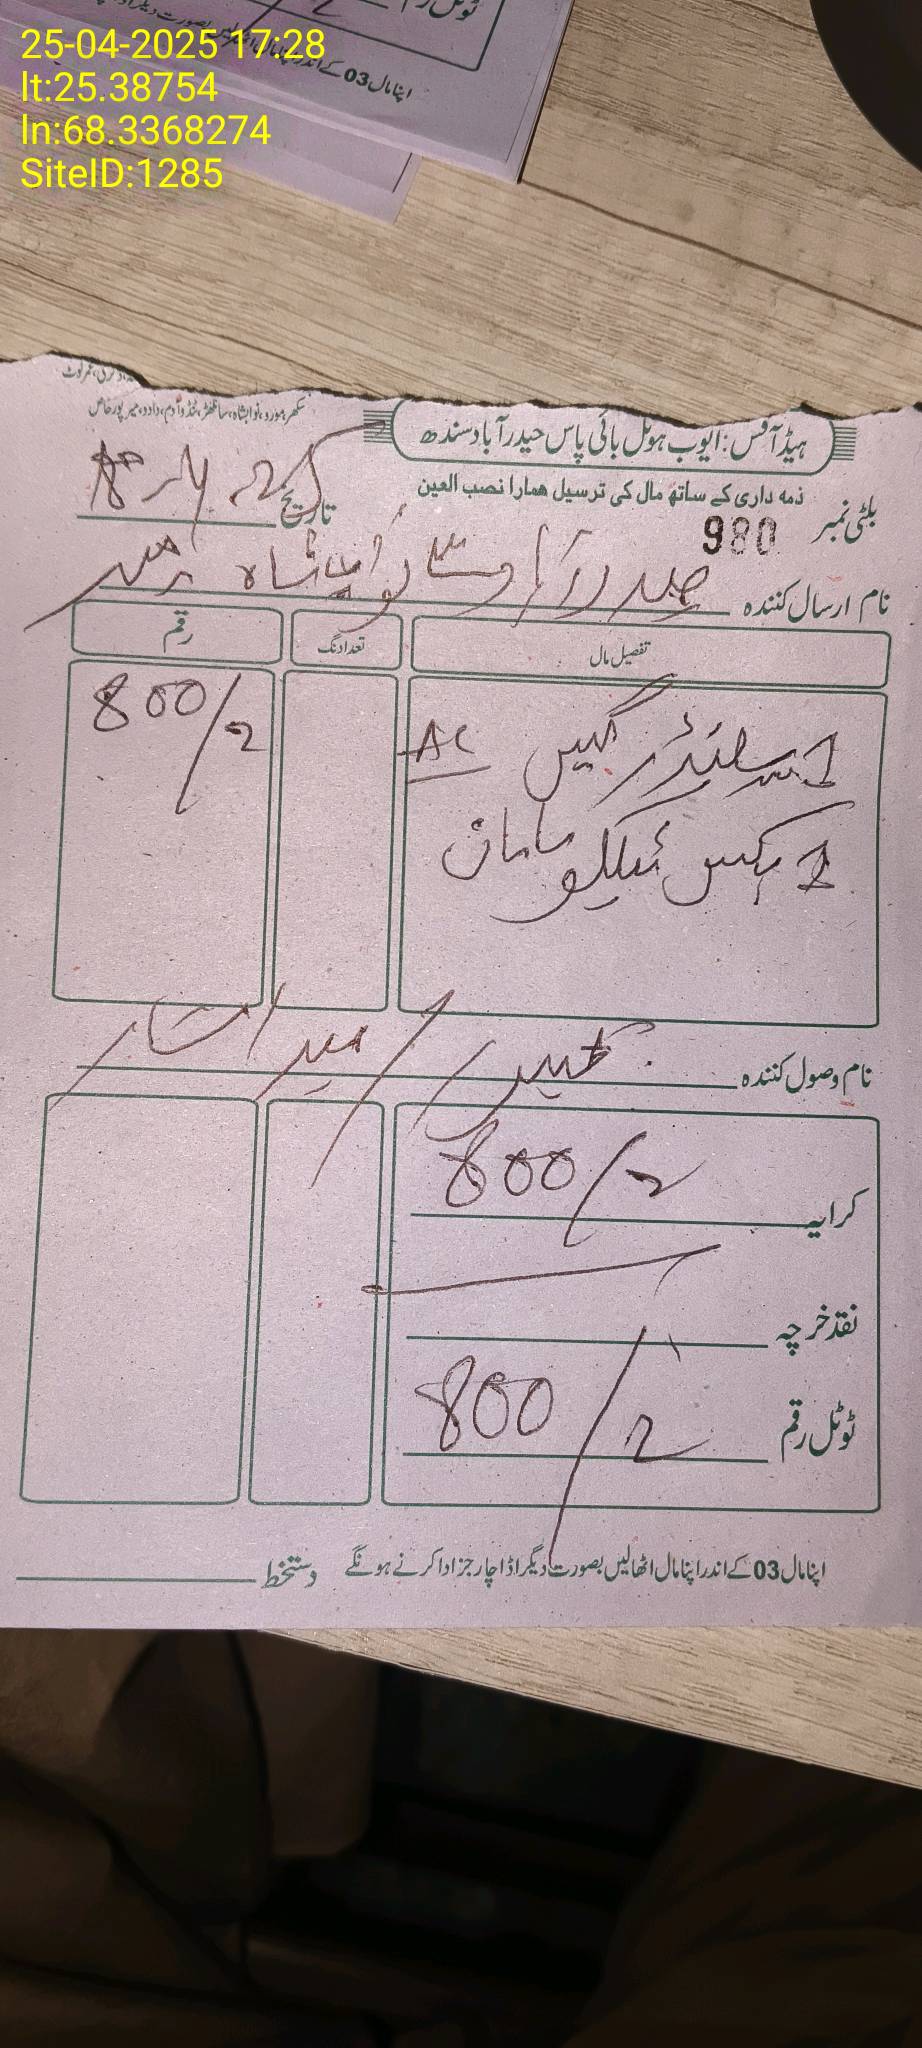 25-04-2025 17:28
lt:25.38754
ln:68.3368274
SiteID:1285
ٹوٹل رقم
اپنا مال 03 کے اندر اپنا مال اٹھالیں بصورت دیگر اڈا
سکھر، مورو، نوابشاہ، سانگھڑ، ٹنڈوآدم، دادو، میرپورخاص
ہیڈ آفس: ایوب ہوٹل بائی پاس حیدرآباد سندھ
ذمہ داری کے ساتھ مال کی ترسیل ہمارا نصب العین
بلٹی نمبر 980 تاریخ
نام ارسال کنندہ حیدرآباد نوابشاہ
تفصیل مال تعداد نگ رقم
1 سلنڈر گیس AC 800/2
1 بکس سامان
نام وصول کنندہ
کرایہ 800/2
نقد خرچہ
ٹوٹل رقم 800/2
اپنا مال 03 کے اندر اپنا مال اٹھالیں بصورت دیگر اڈا چارجز ادا کرنے ہونگے دستخط